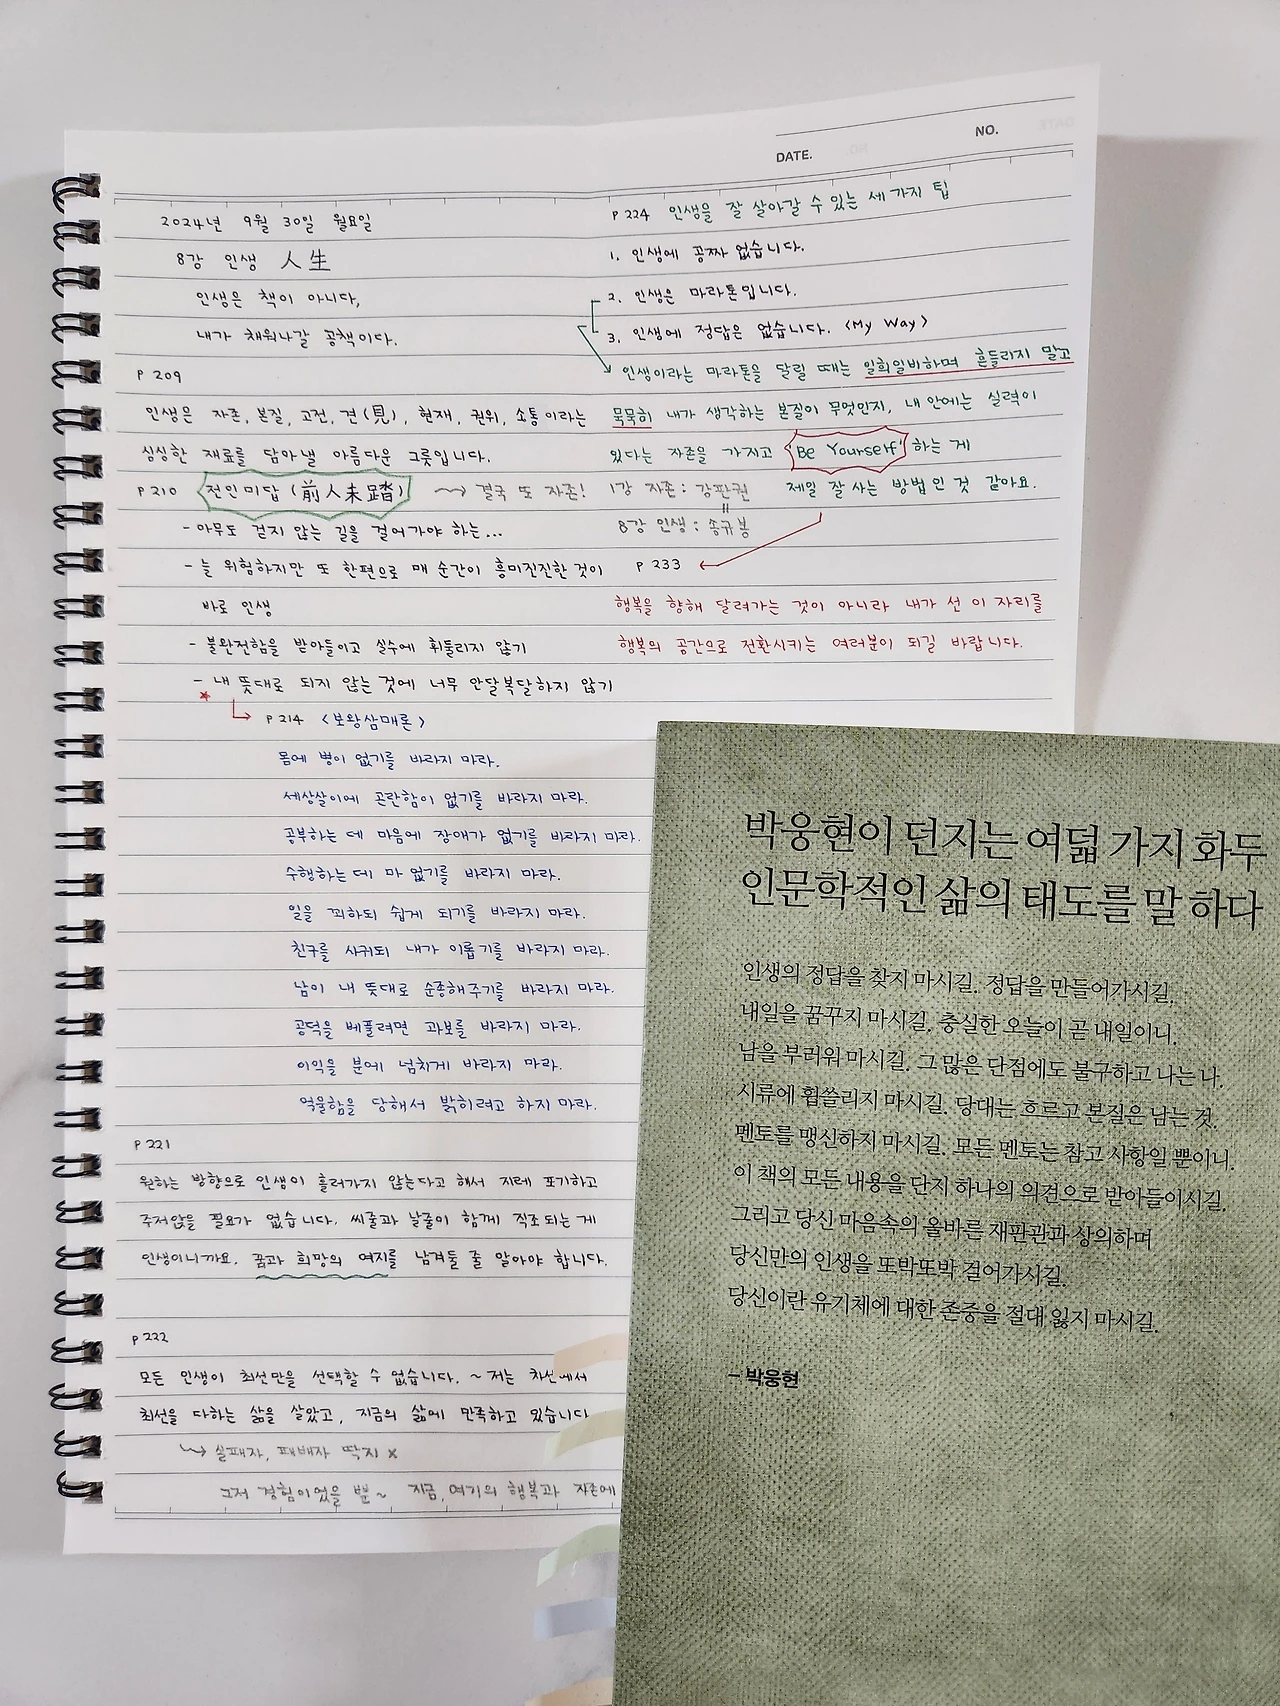 NO.
DATE.
2024년 9월 30일 월요일
8강 인생 人生
인생은 책이 아니다,
내가 채워나갈 공책이다.
P 209
인생은 자존, 본질, 고전, 견(見), 현재, 권위, 소통이라는
싱싱한 재료를 담아낼 아름다운 그릇입니다.
P 210 전인미답 (前人未踏) ~> 결국 또 자존! 1강 자존 : 강판권
=
8강 인생 : 송규봉
- 아무도 걷지 않는 길을 걸어가야 하는...
- 늘 위험하지만 또 한편으로 매 순간이 흥미진진한 것이
바로 인생
- 불완전함을 받아들이고 실수에 휘둘리지 않기
- 내 뜻대로 되지 않는 것에 너무 안달복달하지 않기
P 214 <보왕삼매론>
몸에 병이 없기를 바라지 마라.
세상살이에 곤란함이 없기를 바라지 마라.
공부하는 데 마음에 장애가 없기를 바라지 마라.
수행하는 데 마 없기를 바라지 마라.
일을 꾀하되 쉽게 되기를 바라지 마라.
친구를 사귀되 내가 이롭기를 바라지 마라.
남이 내 뜻대로 순종해주기를 바라지 마라.
공덕을 베풀려면 과보를 바라지 마라.
이익을 분에 넘치게 바라지 마라.
억울함을 당해서 밝히려고 하지 마라.
P 221
원하는 방향으로 인생이 흘러가지 않는다고 해서 지레 포기하고
주저앉을 필요가 없습니다. 씨줄과 날줄이 함께 직조되는 게
인생이니까요. 꿈과 희망의 여지를 남겨둘 줄 알아야 합니다.
P 222
모든 인생이 최선만을 선택할 수 없습니다. ~ 저는 차선에서
최선을 다하는 삶을 살았고, 지금의 삶에 만족하고 있습니다
~> 실패자, 패배자 딱지 x
그저 경험이었을 뿐~ 지금, 여기의 행복과 자존에
P 224 인생을 잘 살아갈 수 있는 세 가지 팁
1. 인생에 공짜 없습니다.
2. 인생은 마라톤입니다.
3. 인생에 정답은 없습니다. <My Way>
인생이라는 마라톤을 달릴 때는 일희일비하며 흔들리지 말고
묵묵히 내가 생각하는 본질이 무엇인지, 내 안에는 실력이
있다는 자존을 가지고 'Be Yourself' 하는 게
제일 잘 사는 방법인 것 같아요.
P 233
행복을 향해 달려가는 것이 아니라 내가 선 이 자리를
행복의 공간으로 전환시키는 여러분이 되길 바랍니다.
박웅현이 던지는 여덟 가지 화두
인문학적인 삶의 태도를 말 하다
인생의 정답을 찾지 마시길. 정답을 만들어가시길.
내일을 꿈꾸지 마시길. 충실한 오늘이 곧 내일이니.
남을 부러워 마시길. 그 많은 단점에도 불구하고 나는 나.
시류에 휩쓸리지 마시길. 당대는 흐르고 본질은 남는 것.
멘토를 맹신하지 마시길. 모든 멘토는 참고 사항일 뿐이니.
이 책의 모든 내용을 단지 하나의 의견으로 받아들이시길.
그리고 당신 마음속의 올바른 재판관과 상의하며
당신만의 인생을 또박또박 걸어가시길.
당신이란 유기체에 대한 존중을 절대 잃지 마시길.
– 박웅현